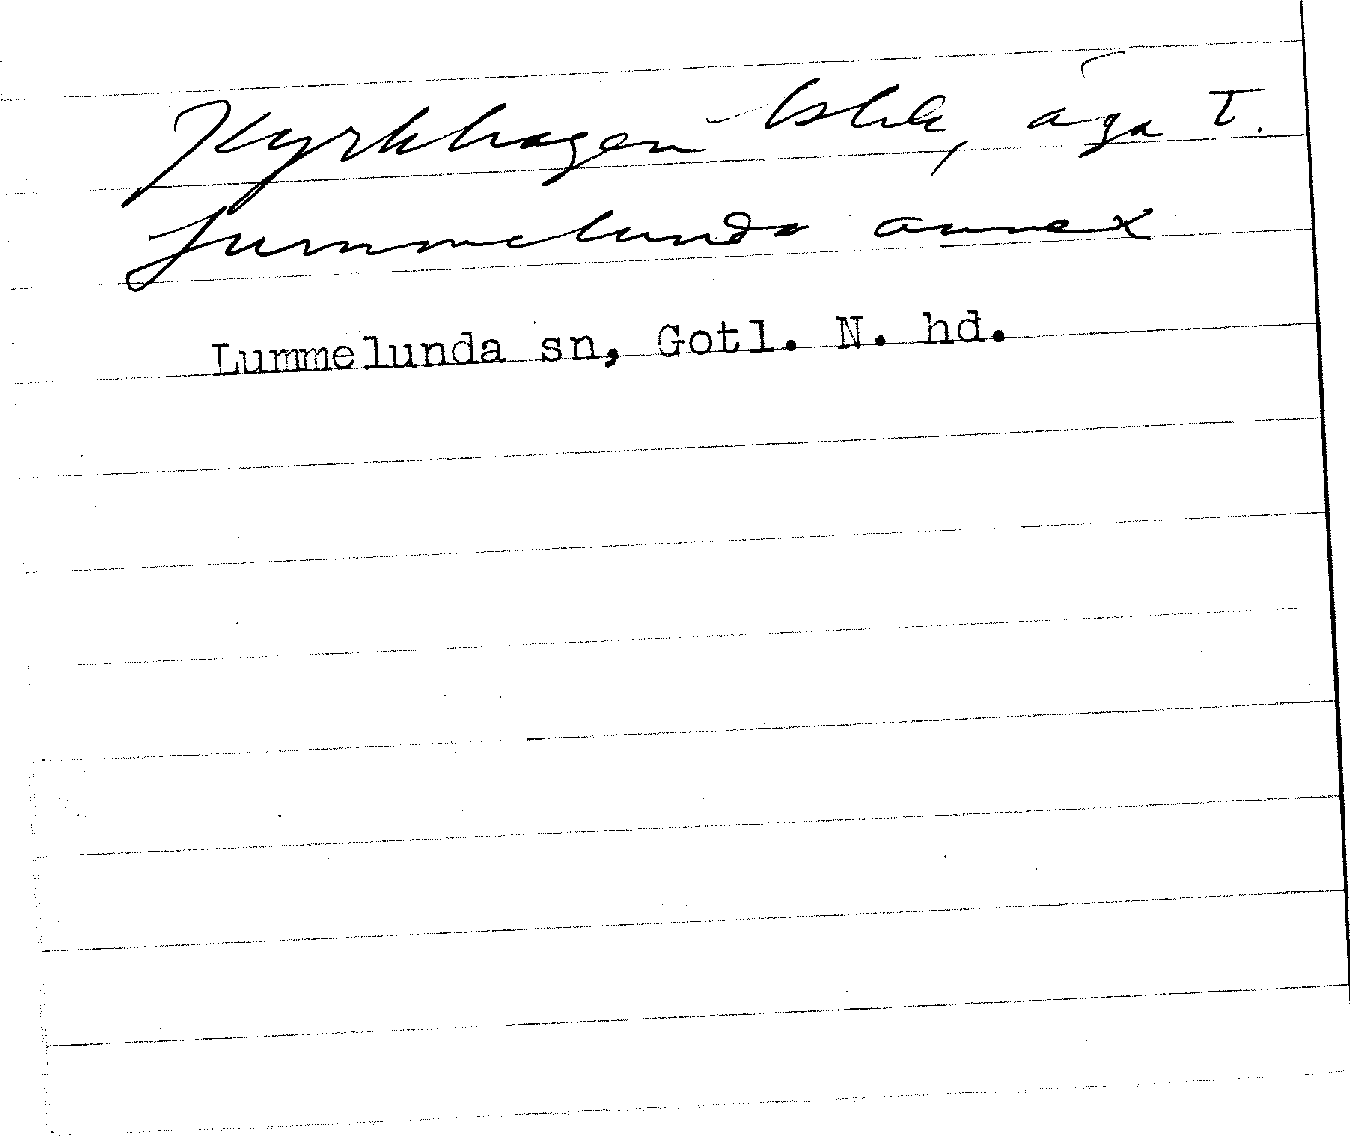 Kyrkhagen bhde, äga t.
Lummelunda annex
Lummelunda sn, Gotl. N. hd.